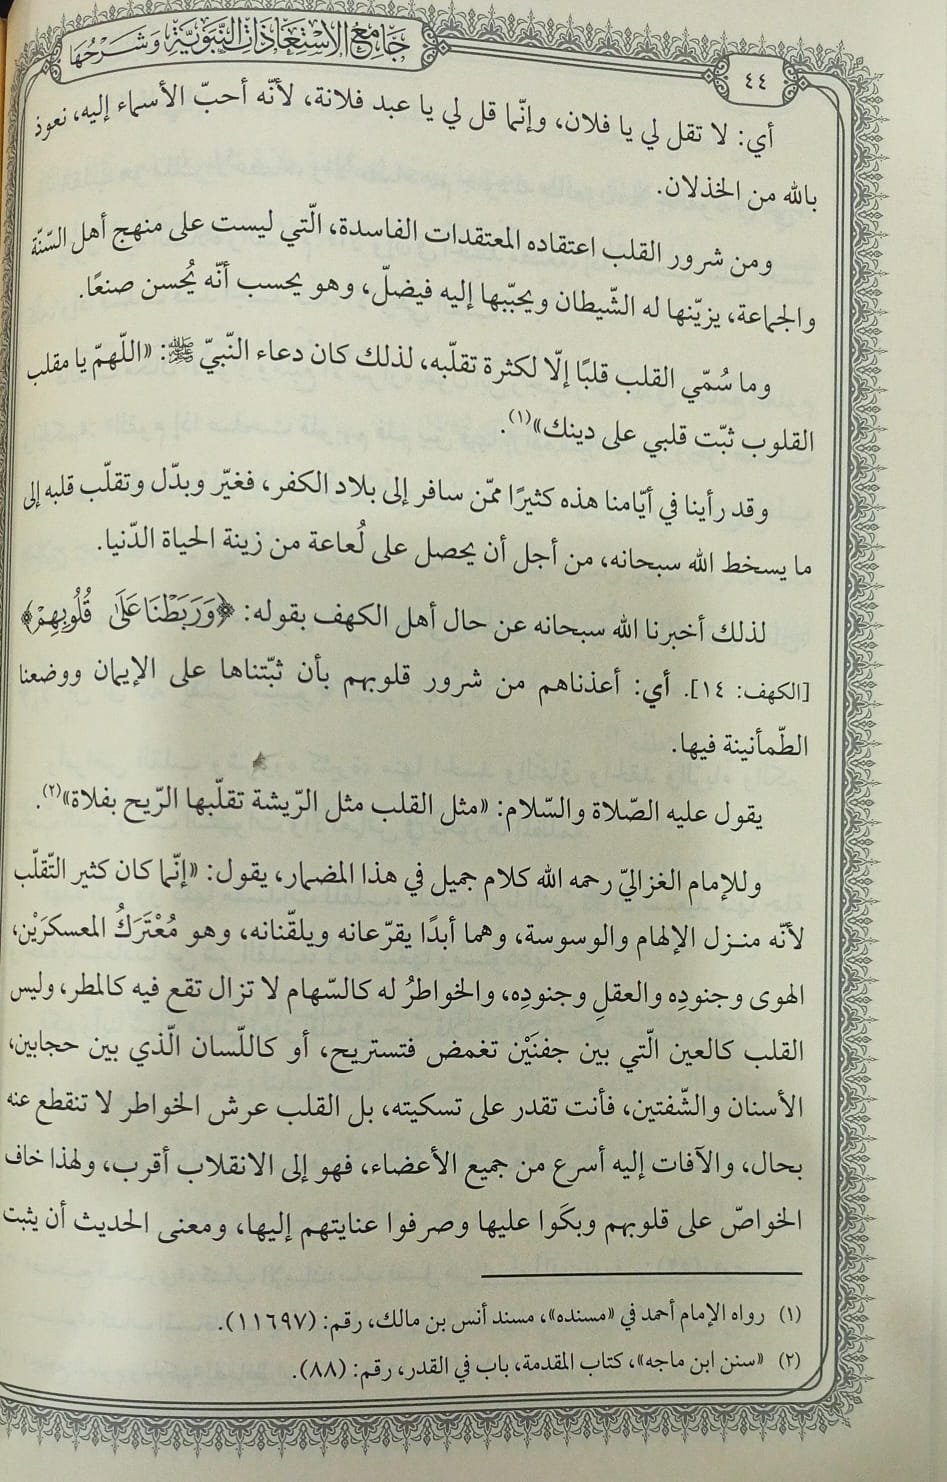 جَامِعُ الِاسْتِعَاذَاتِ النَّبَوِيَّةِ وَشَرْحُهَا
٤٤
أي: لا تقل لي يا فلان، وإنّما قل لي يا عبد فلانة، لأنّه أحبّ الأسماء إليه، نعوذ
بالله من الخذلان.
ومن شرور القلب اعتقاده المعتقدات الفاسدة، الّتي ليست على منهج أهل السّنّة
والجماعة، يزيّنها له الشّيطان ويحبّبها إليه فيضلّ، وهو يحسب أنّه يُحسن صنعًا.
وما سُمّي القلب قلبًا إلّا لكثرة تقلّبه، لذلك كان دعاء النّبيّ ﷺ: «اللّهمّ يا مقلب
القلوب ثبّت قلبي على دينك»(١).
وقد رأينا في أيّامنا هذه كثيرًا ممّن سافر إلى بلاد الكفر، فغيّر وبدّل وتقلّب قلبه إلى
ما يسخط الله سبحانه، من أجل أن يحصل على لُعاعة من زينة الحياة الدّنيا.
لذلك أخبرنا الله سبحانه عن حال أهل الكهف بقوله: ﴿وَرَبَطْنَا عَلَىٰ قُلُوبِهِمْ﴾
[الكهف: ١٤]. أي: أعذناهم من شرور قلوبهم بأن ثبّتناها على الإيمان ووضعنا
الطّمأنينة فيها.
يقول عليه الصّلاة والسّلام: «مثل القلب مثل الرّيشة تقلّبها الرّيح بفلاة»(٢).
وللإمام الغزاليّ رحمه الله كلام جميل في هذا المضمار، يقول: «إنّما كان كثير التّقلّب
لأنّه منـزل الإلهام والوسوسة، وهما أبدًا يقرّعانه ويلقّنانه، وهو مُعْتَرَكُ المعسكرَيْن،
الهوى وجنودِه والعقلِ وجنودِه، والخواطرُ له كالسّهام لا تزال تقع فيه كالمطر، وليس
القلب كالعين الّتي بين جفنَيْن تغمض فتستريح، أو كاللّسان الّذي بين حجابين،
الأسنان والشّفتين، فأنت تقدر على تسكيته، بل القلب عرش الخواطر لا تنقطع عنه
بحال، والآفات إليه أسرع من جميع الأعضاء، فهو إلى الانقلاب أقرب، ولهذا خاف
الخواصّ على قلوبهم وبكَوا عليها وصرفوا عنايتهم إليها، ومعنى الحديث أن يثبت
(١) رواه الإمام أحمد في «مسنده»، مسند أنس بن مالك، رقم: (١١٦٩٧).
(٢) «سنن ابن ماجه»، كتاب المقدمة، باب في القدر، رقم: (٨٨).